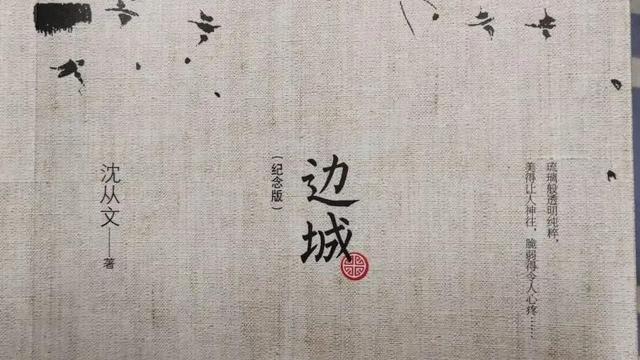 琉璃般透明纯粹，
美得让人神往，脆弱得令人心疼……
边城
（纪念版）
沈从文——著